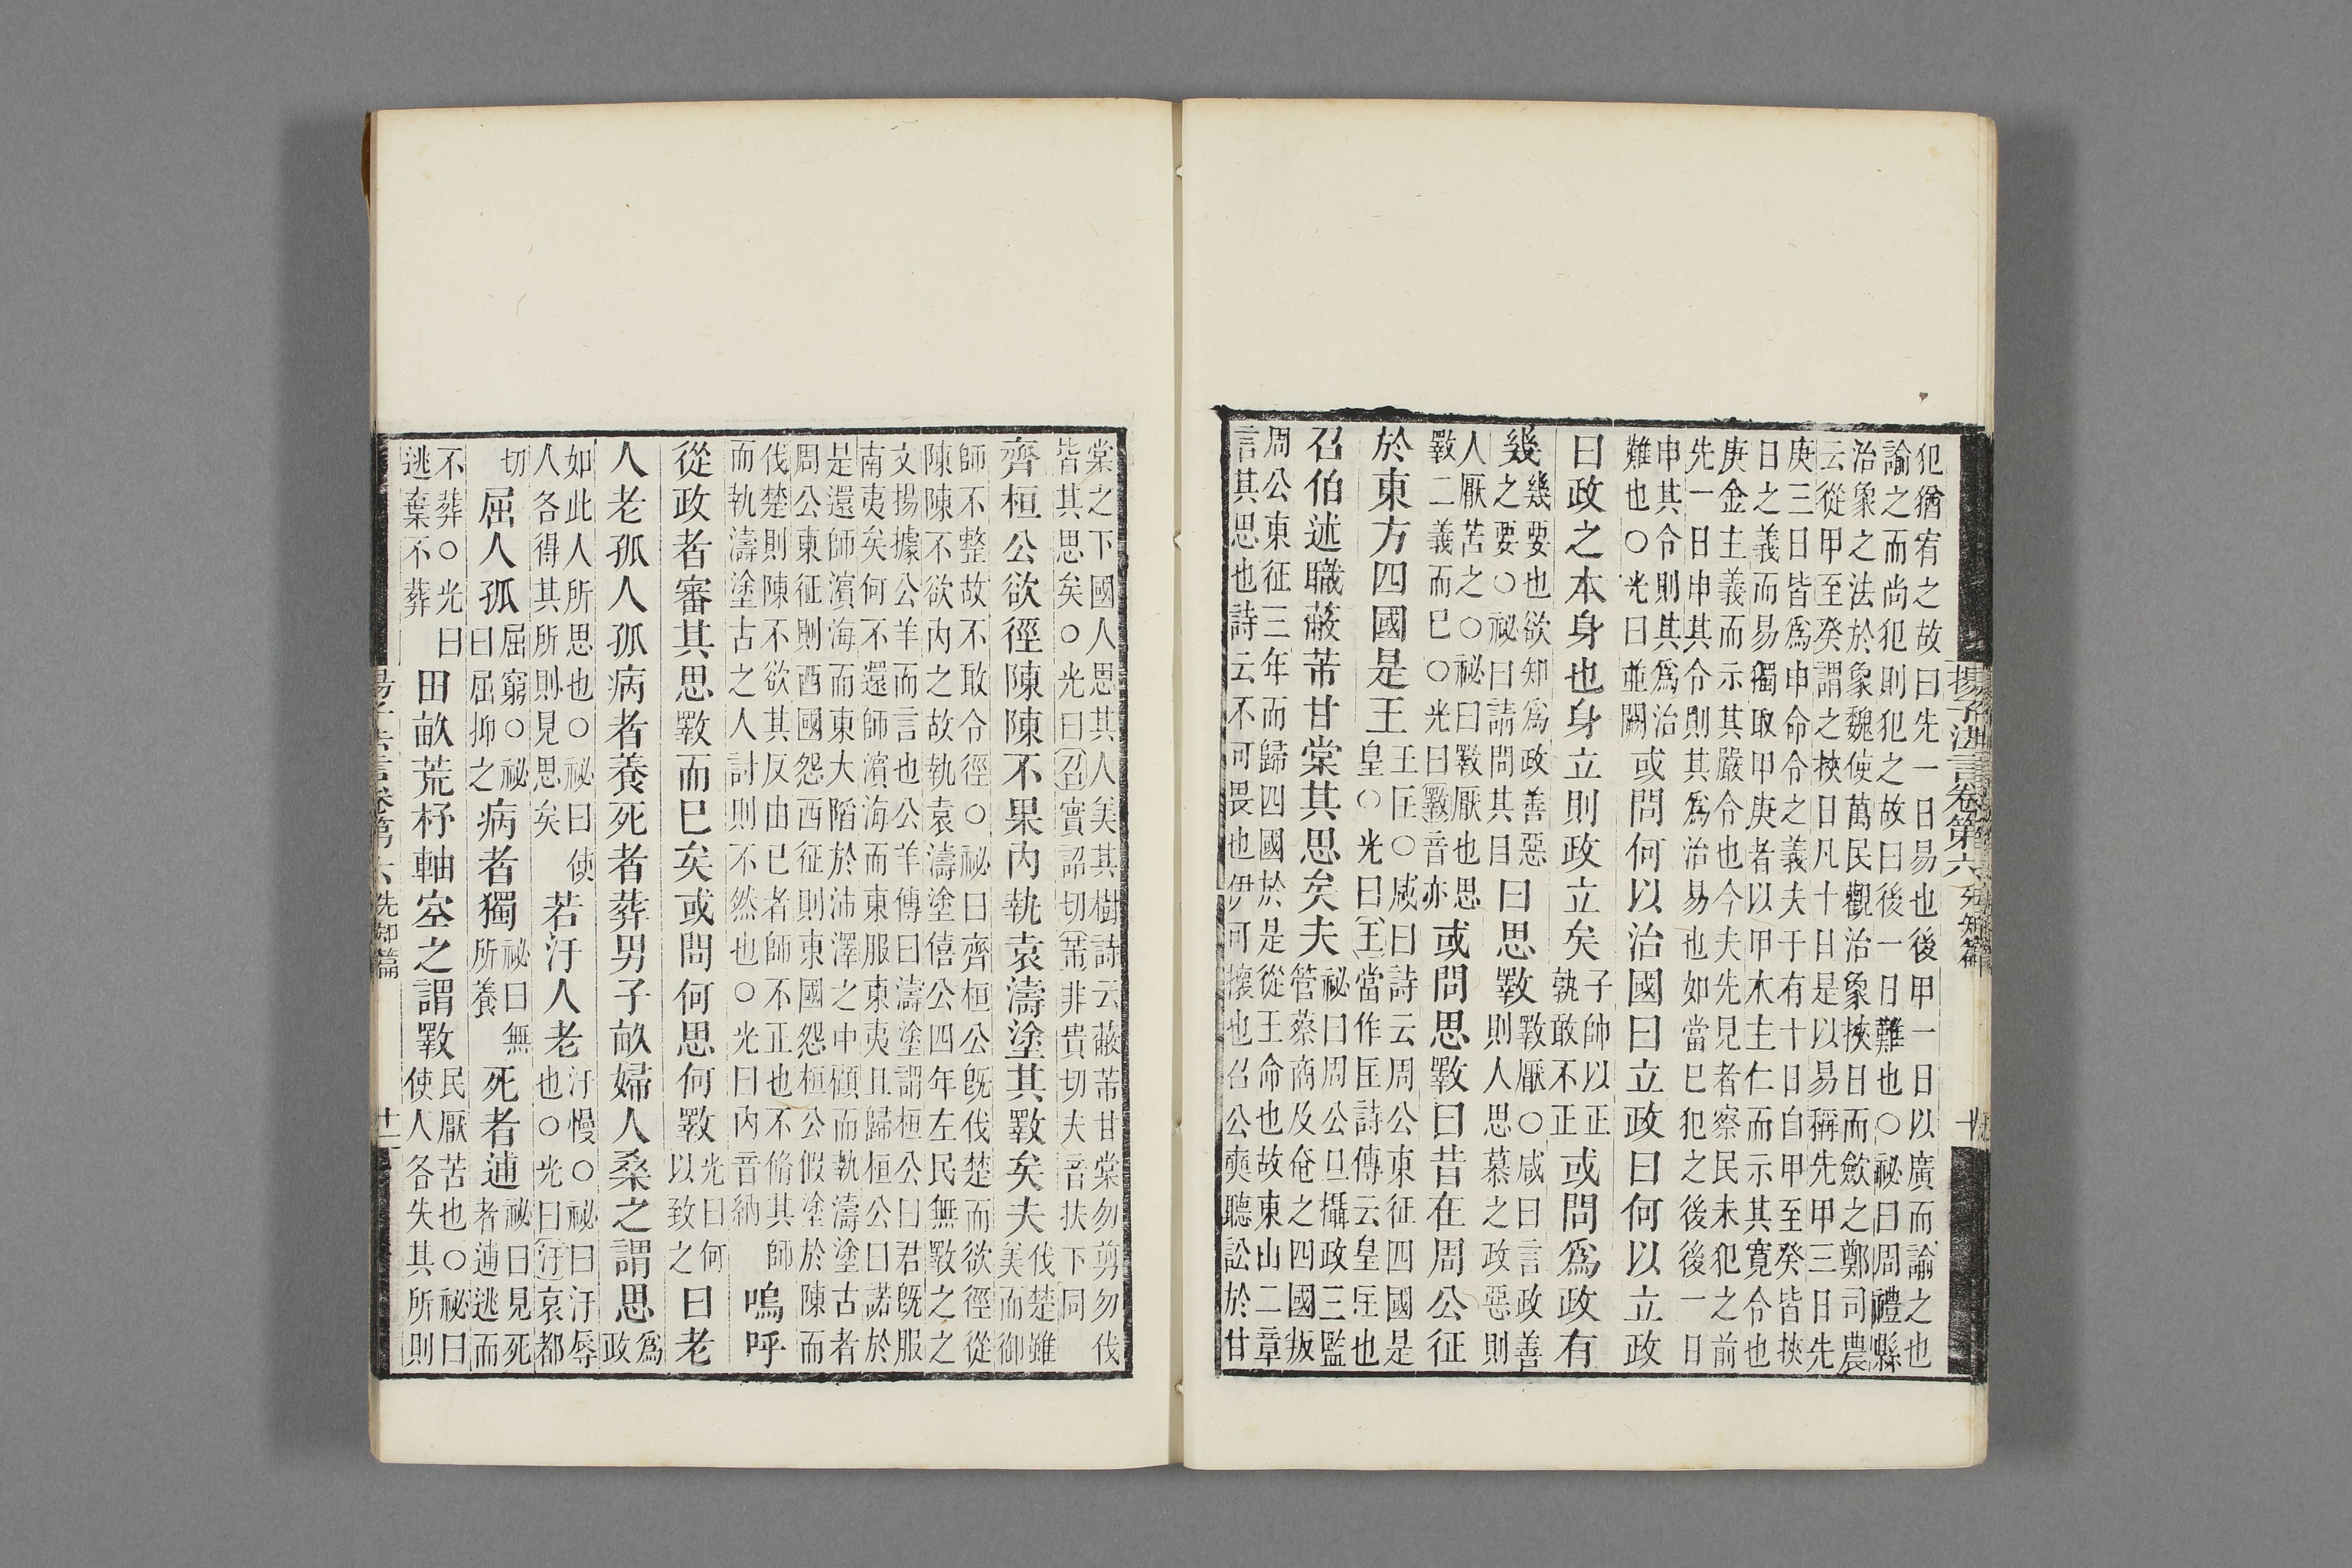 揚子法言卷第六 先知篇
犯猶宥之故曰先一日易也後甲一日以廣而諭之也
諭之而尚犯則犯之故曰後一日難也○祕曰周禮縣
治象之法於象魏使萬民觀治象挾日而斂之鄭司農
云從甲至癸謂之挾日凡十日是以易稱先甲三日先
庚三日皆爲申命令之義夫于有十日自甲至癸皆挾
日之義而易獨取甲庚者以甲木主仁而示其寬令也
庚金主義而示其嚴令也今夫先見者察民未犯之前
先一日申其令則其爲治易也如當巳犯之後後一日
申其令則其爲治難也○光曰並闕或問何以治國曰立政曰何以立政
曰政之本身也身立則政立矣子帥以正孰敢不正或問爲政有
幾幾要也欲知爲政善惡之要○祕曰請問其目曰思斁斁厭○咸曰言政善則人思慕之政惡則
人厭苦之○祕曰斁厭也思斁二義而巳○光曰斁音亦或問思斁曰昔在周公征
於東方四國是王王匡○咸曰詩云周公東征四國是皇○光曰王當作匡詩傳云皇匡也
召伯述職蔽芾甘棠其思矣夫祕曰周公旦攝政三監管蔡商及奄之四國叛
周公東征三年而歸四國於是從王命也故東山二章
言其思也詩云不可畏也伊可懷也召公奭聽訟於甘
棠之下國人思其人美其樹詩云蔽芾甘棠勿剪勿伐
皆其思矣○光曰召實詔切芾非貴切夫音扶下同
齊桓公欲徑陳陳不果內執袁濤塗其斁矣夫伐楚雖美而御
師不整故不敢令徑○祕曰齊桓公旣伐楚而欲徑從
陳陳不欲內之故執袁濤塗僖公四年左氏無斁之之
文揚據公羊而言也公羊傳曰濤塗謂桓公曰君旣服
南夷矣何不還師濱海而東服東夷且歸桓公曰諾於
是還師濱海而東大陷於沛澤之中顧而執濤塗古者
周公東征則西國怨西征則東國怨桓公假塗於陳而
伐楚則陳不欲其反由已者師不正也不脩其師而執濤塗古之人討則不然也○光曰內音納嗚呼
從政者審其思斁而巳矣或問何思何斁光曰何以致之曰老
人老孤人孤病者養死者葬男子畝婦人桑之謂思爲政
如此人所思也○祕曰使人各得其所則見思矣若汙人老汙慢○祕曰汙辱也○光曰汙哀都
切屈人孤屈窮○祕曰屈抑之病者獨祕曰無所養死者逋祕曰見死者逋逃而
不葬○光曰逃棄不葬田畝荒杼軸空之謂斁民厭苦也○祕曰使人各失其所則
揚子法言卷第六 先知篇 十一